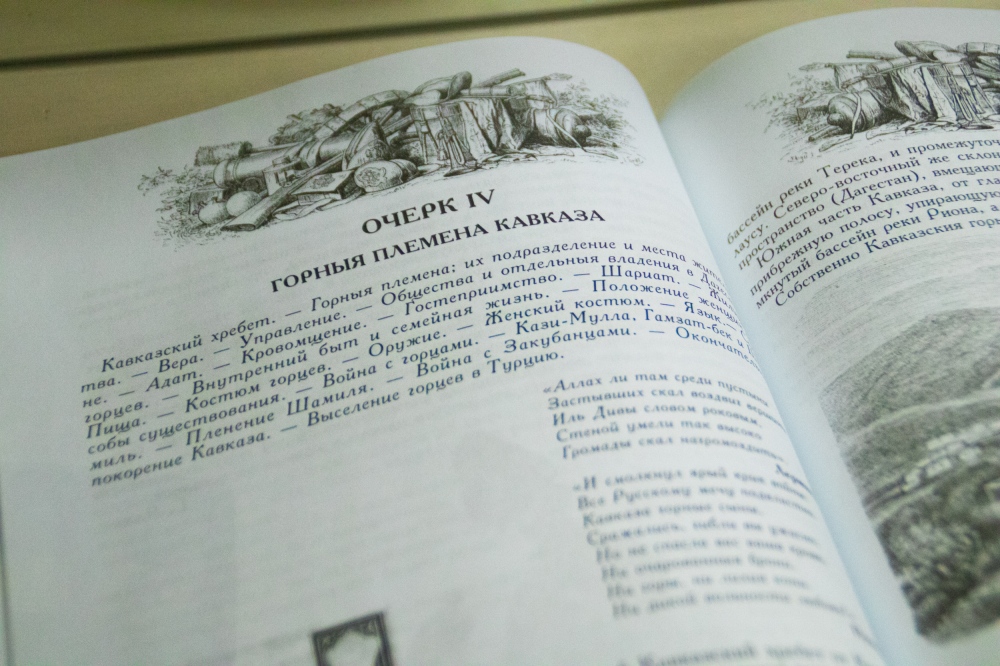 ОЧЕРК IV
ГОРНЫЯ ПЛЕМЕНА КАВКАЗА
Кавказский хребет. — Горныя племена; их подразделение и места жит
тва. — Вера. — Управление. — Общества и отдельныя владения в Даге
не. — Адат. — Кровомщение. — Гостеприимство. — Шариат. — Жил
горцев. — Внутренний быт и семейная жизнь. — Положение женщ
Пища. — Костюм горцев. — Оружие. — Женский костюм. — Язык. —
собы существования. — Война с горцами. — Кази-Мулла, Гамзат-бек и
миль. — Пленение Шамиля. — Война с Закубанцами. — Окончател
покорение Кавказа. — Выселение горцев в Турцию.
«Аллах ли там среди пустыни
Застывших скал воздвиг
Иль Дивы словом роковым
Стеной умели так высоко
Громады скал нагромоздить
«И смолкнул ярый крик войны
Все Русскому мечу подвластно
Кавказа гордые сыны
Сражались, гибли вы ужасно
Но не спасла вас ваша кровь
Ни очарованныя брони
Ни горы, ни лихие кони
Ни дикой вольности любовь
бассейн реки Терека, и промежуточ
лаусу. Северо-восточный же склон
пространство (Дагестан), вмещаю
Южная часть Кавказа, от гла
прибрежную полосу, упирающую
мкнутый бассейн реки Риона, а
Собственно Кавказския горы